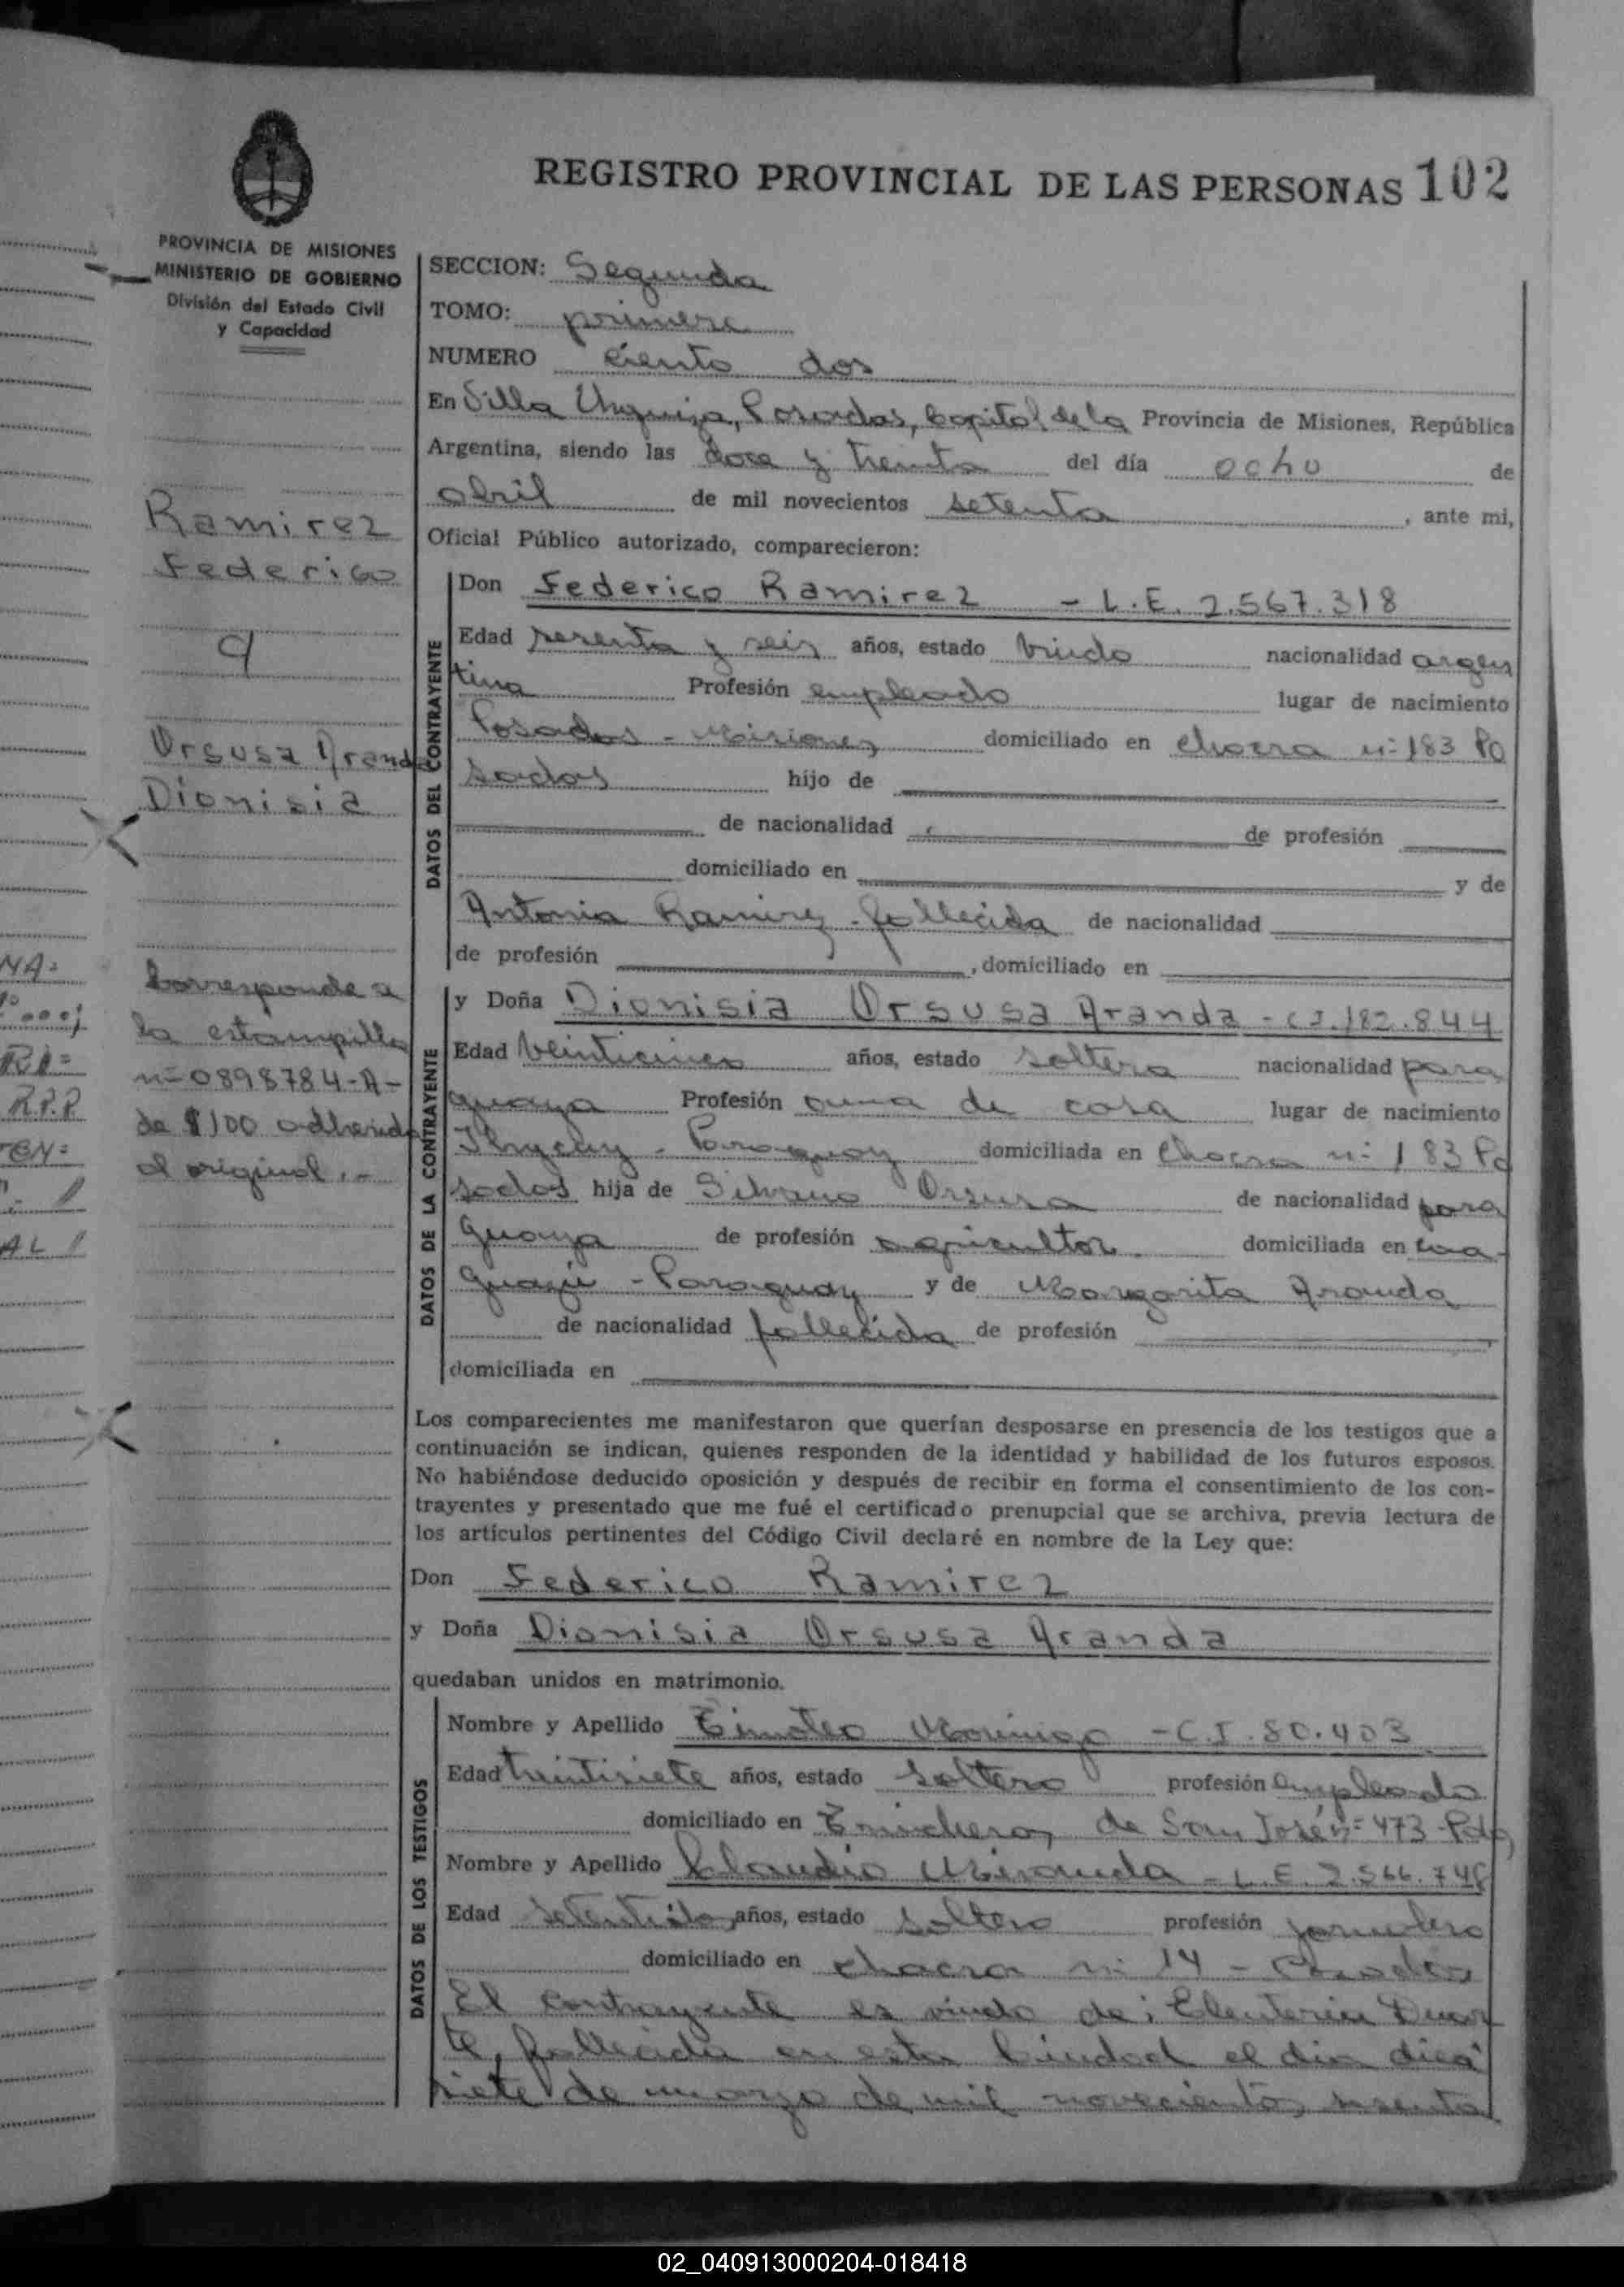 REGISTRO PROVINCIAL DE LAS PERSONAS 102
PROVINCIA DE MISIONES
MINISTERIO DE GOBIERNO
División del Estado Civil
y Capacidad
SECCION: Segunda
TOMO: primero
NUMERO ciento dos
En Villa Urquiza, Posadas, Capital de la Provincia de Misiones, República
Argentina, siendo las doce y treinta del día ocho de
abril de mil novecientos setenta, ante mi,
Oficial Público autorizado, comparecieron:
Ramirez
Federico
q
Orsusa Aranda
Dionisia
DATOS DEL CONTRAYENTE
Don Federico Ramirez - L.E. 2.567.318
Edad sesenta y seis años, estado viudo nacionalidad argen
tina Profesión empleado lugar de nacimiento
Posadas - Misiones domiciliado en chacra nº 183 Po
sadas hijo de
de nacionalidad de profesión
domiciliado en y de
Antonia Ramirez - fallecida de nacionalidad
de profesión , domiciliado en
Corresponde a
la estampilla
nº 0898784-A-
de $100 adherida
al original.-
DATOS DE LA CONTRAYENTE
y Doña Dionisia Orsusa Aranda - C.I. 182.844
Edad veinticinco años, estado soltera nacionalidad para
guaya Profesión ama de casa lugar de nacimiento
Paraguay domiciliada en Chacra nº 183 Po
sadas hija de Silvano Orsusa de nacionalidad para
guaya de profesión agricultor. domiciliada en Caa
guazú - Paraguay y de Margarita Aranda
de nacionalidad fallecida de profesión
domiciliada en
Los comparecientes me manifestaron que querían desposarse en presencia de los testigos que a
continuación se indican, quienes responden de la identidad y habilidad de los futuros esposos.
No habiéndose deducido oposición y después de recibir en forma el consentimiento de los con-
trayentes y presentado que me fué el certificado prenupcial que se archiva, previa lectura de
los artículos pertinentes del Código Civil declaré en nombre de la Ley que:
Don Federico Ramirez
y Doña Dionisia Orsusa Aranda
quedaban unidos en matrimonio.
DATOS DE LOS TESTIGOS
Nombre y Apellido Timoteo Morinigo - C.I. 80.403
Edad treintisiete años, estado soltero profesión empleado
domiciliado en Trincheras de San José nº 473 - Pdas
Nombre y Apellido Claudio Miranda - L.E. 2.566.748
Edad años, estado soltero profesión jornalero
domiciliado en chacra nº 14 - Posadas
El contrayente es viudo de: Eleuteria Duar
te, fallecida en esta Ciudad el dia dieci
siete de marzo de mil novecientos sesenta
MA=
RI=
R.P.P
EN=
AL 1
02_040913000204-018418